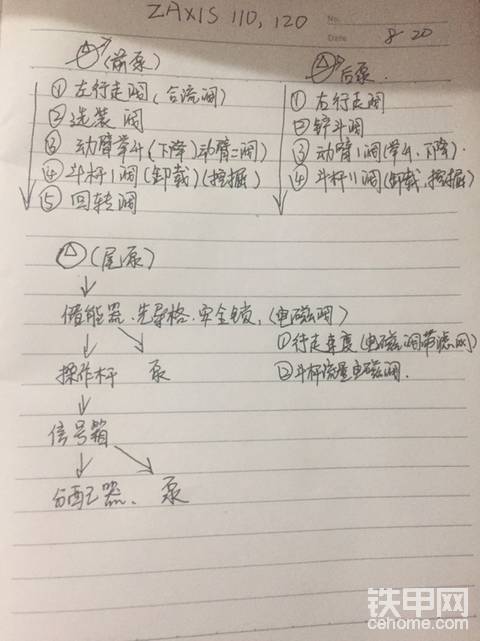 ZAXIS 110, 120
No.
Date 8-20
(前泵)
① 左行走阀(合流阀)
② 选装阀
③ 动臂举升(下降)动臂二阀)
④ 斗杆1阀(卸载)(挖掘)
⑤ 回转阀
后泵.
① 右行走阀
② 铲斗阀
③ 动臂1阀(举升、下降).
④ 斗杆11阀(卸载、挖掘)
(尾泵)
储能器、先导格、安全锁,(电磁阀)
① 行走车度(电磁阀带滤网)
② 斗杆流量电磁阀.
操作杆 泵
信号箱
分配器、泵
铁甲网
cehome.com